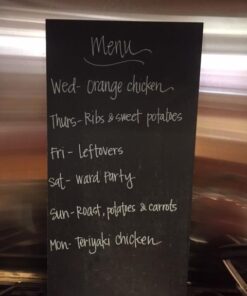 Menu
Wed- Orange chicken
Thurs- Ribs & sweet potatoes
Fri - leftovers
Sat- Ward Party
Sun- Roast, potatoes & carrots
Mon- Teriyaki chicken